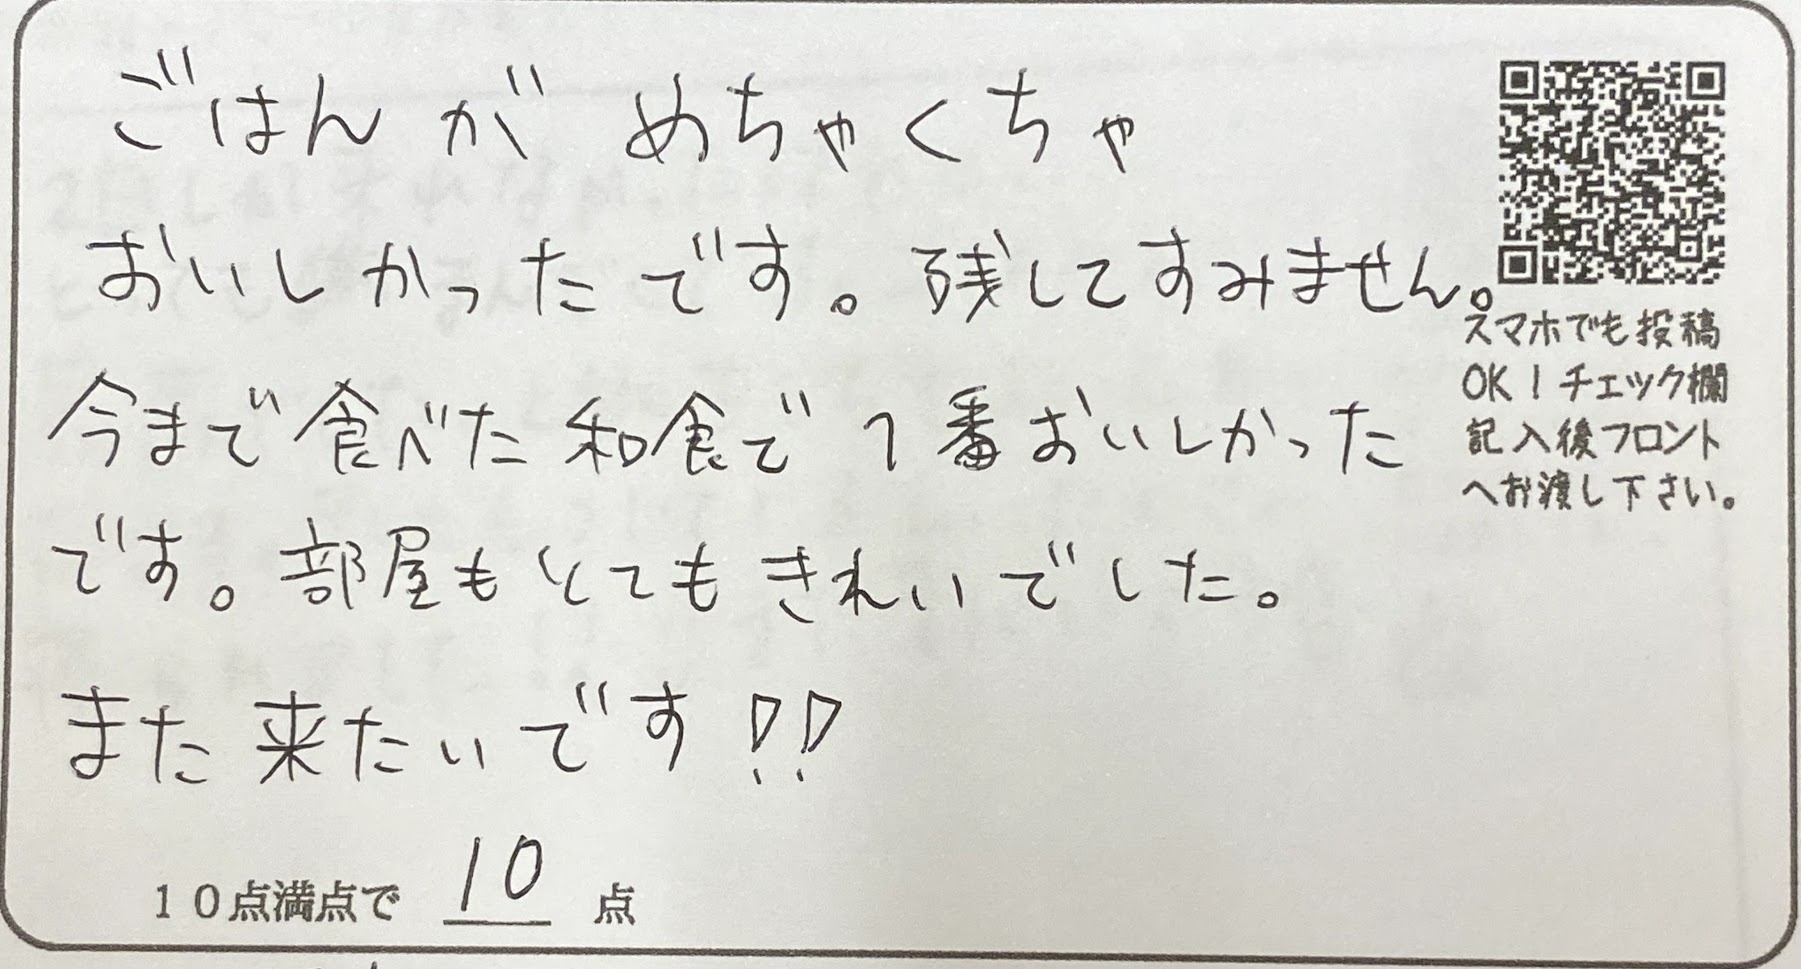 ごはんがめちゃくちゃ
おいしかったです。残してすみません。
今まで食べた和食で1番おいしかった
です。部屋もとてもきれいでした。
また来たいです!!
スマホでも投稿
OK!チェック欄
記入後フロント
へお渡し下さい。
10点満点で 10 点